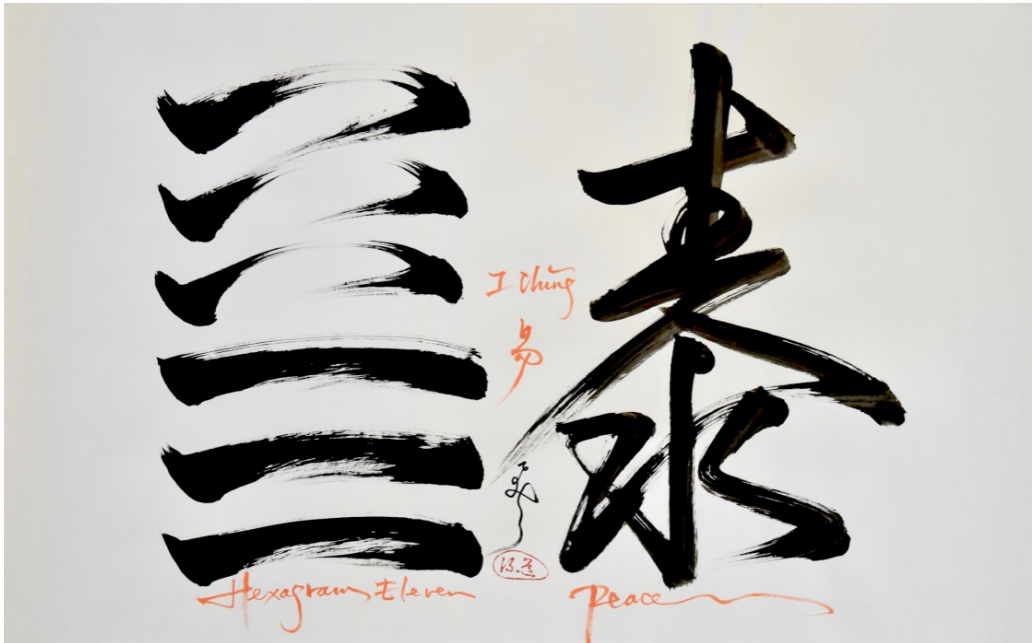 泰
I Ching
易
Hexagram Eleven
Peace